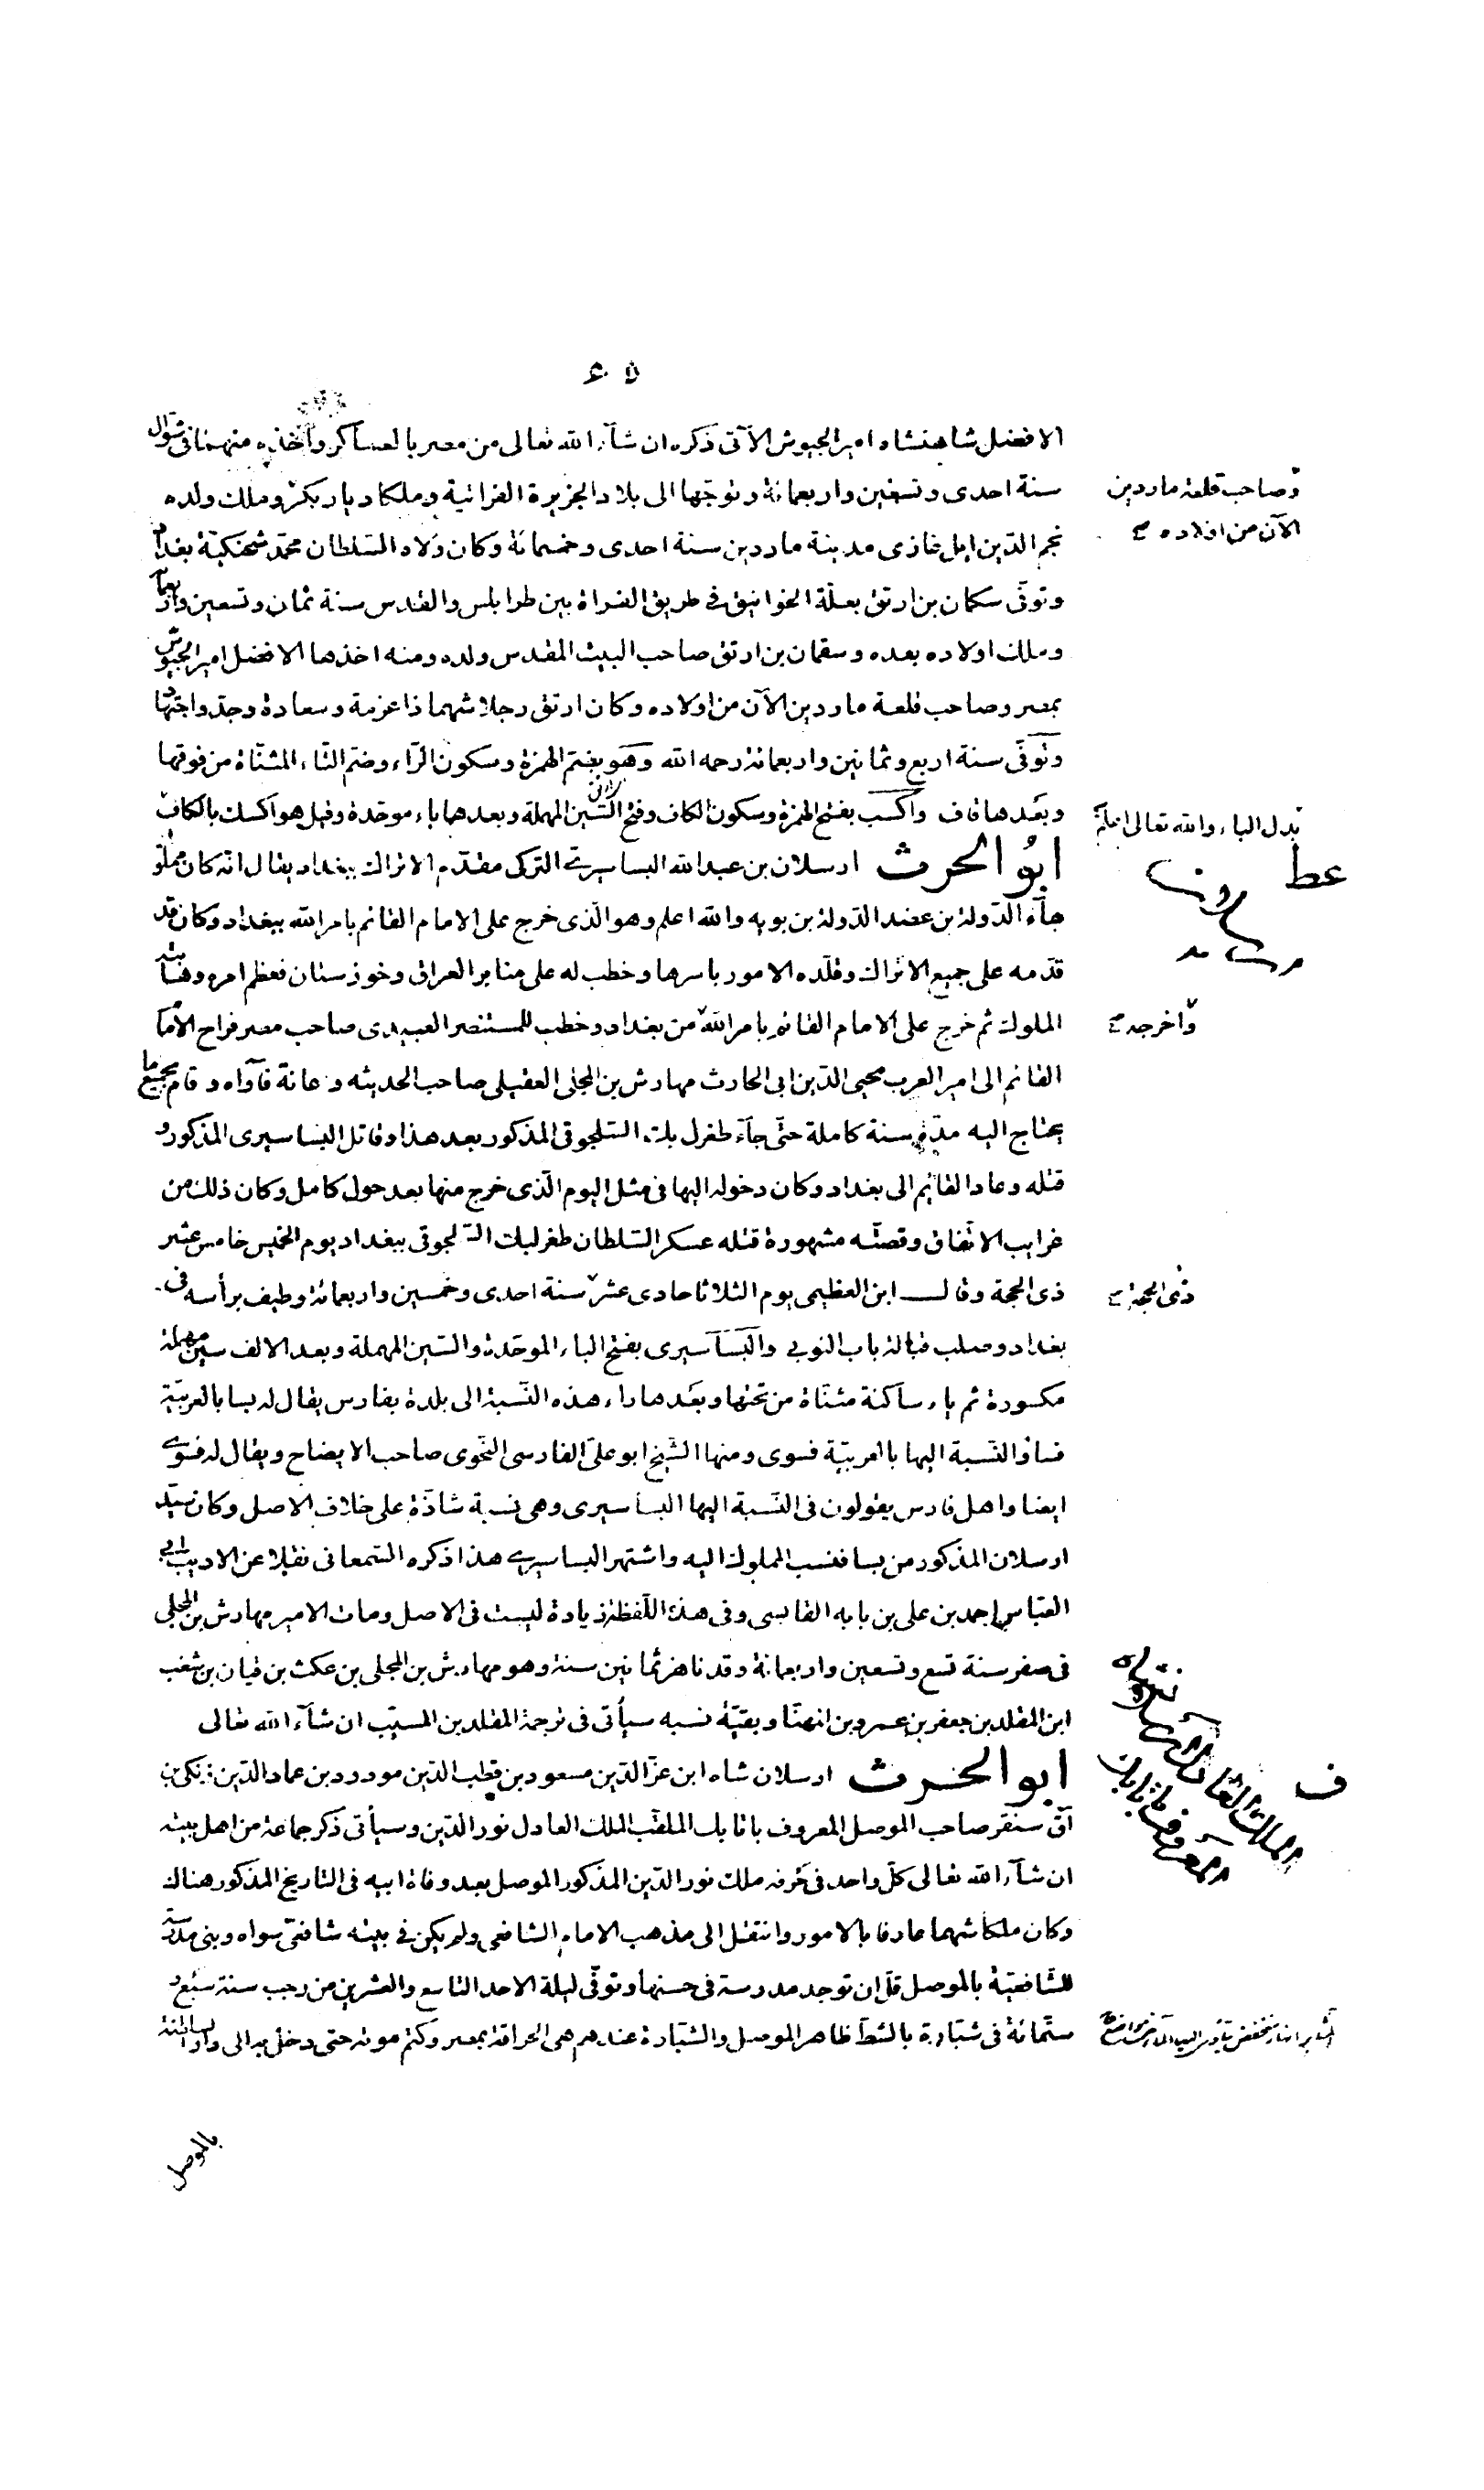 ٤٥
الافضل شاهنشاه امير الجيوش الآتى ذكره ان شآء الله تعالى من مصر بالعساكر وأخذه منهما فى شوال
سنة احدى وتسعين واربعمائة وتوجها الى بلاد الجزيرة الفراتية وملكا ديار بكر وملك ولده
وصاحب قلعة ماردين
الآن من اولاده صح
نجم الدين ايل غازى مدينة ماردين سنة احدى وخمسمائة وكان ولاه السلطان محمد شحنكية بغداد
وتوفى سكمان بن ارتق بعلة الخوانيق فى طريق الفراة بين طرابلس والقدس سنة ثمان وتسعين واربعمآ
وملك اولاده بعده وسقمان بن ارتق صاحب البيت المقدس ولده ومنه اخذها الافضل امير الجيوش
بمصر وصاحب قلعة ماردين الآن من اولاده وكان ارتق رجلا شهما ذا عزمة وسعادة وجد واجتهاد
وتوفى سنة اربع وثمانين واربعمائة رحمه الله وهو بضم الهمزة وسكون الرّاء وضم التاء المثنّاة من فوقها
وبعدها قاف واكسب بفتح الهمزة وسكون الكاف وفتح السّين المهملة وبعدها باء موحّدة وقيل هو اكسك بالكاف
بدل الباء والله تعالى اعلم
ابُو الحرث ارسلان بن عبدالله البساسيرى التركى مقدّم الاتراك ببغداد يقال انه كان مملوك
عط
ارسلان
بهآء الدّولة بن عضد الدّولة بن بويه والله اعلم وهو الّذى خرج على الامام القائم بامر الله ببغداد وكان قد
قدّمه على جميع الاتراك وقلّده الامور باسرها وخطب له على منابر العراق وخوزستان فعظم امره وهابته
الملوك ثم خرج على الامام القائم بامر الله من بغداد وخطب للمستنصر العبيدى صاحب مصر فراح الامام
واخرجه صح
القائم الى امير العرب محيى الدّين ابى الحارث مهارش بن المجلى العقيلى صاحب الحديثه وعانة فآواه وقام بجميع ما
يحتاج اليه مدّة سنة كاملة حتّى جآء طغرل بك السّلجوقى المذكور بعد هذا وقاتل البساسيرى المذكور و
قتله وعاد القائم الى بغداد وكان دخوله اليها فى مثل اليوم الّذى خرج منها بعد حول كامل وكان ذلك من
غرايب الاتّفاق وقصّته مشهورة قتله عسكر السّلطان طغرلبك السّلجوقى ببغداد يوم الخميس خامس عشر
ذى الحجة وقال ابن العظيمى يوم الثلاثا حادى عشر سنة احدى وخمسين واربعمائة وطيف برأسه فى
ذى الحجة صح
بغداد وصلب قبالة باب النوبى والبساسيرى بفتح الباء الموحّدة والسّين المهملة وبعد الالف سين مهملة
مكسورة ثم ياء ساكنة مثنّاة من تحتها وبعدها راء هذه النّسبة الى بلدة بفارس يقال له بسا بالعربيّة
فسا والنّسبة اليها بالعربيّة فسوى ومنها الشّيخ ابو علىّ الفارسى النّحوى صاحب الايضاح ويقال له فسوى
ايضا واهل فارس يقولون فى النّسبة اليها البساسيرى وهى نسبة شاذّة على خلاف الاصل وكان سيّد
ارسلان المذكور من بسا فنسب المملوك اليه واشتهر البساسيرى هذا ذكره السّمعانى نقلا عن الاديب ابى
العبّاس احمد بن على بن بابه القابسى وفى هذه اللّفظة زيادة ليست فى الاصل ومات الامير مهارش بن المجلى
فى صفر سنة تسع وتسعين واربعمائة وقد ناهز ثمانين سنة وهو مهارش بن المجلى بن عكث بن قيان بن شعب
ابن المقلد بن جعفر بن عمرو بن المهنّا وبقيّة نسبه سيأتى فى ترجمة المقلد بن المسيّب ان شآء الله تعالى
ابو الحرث ارسلان شاه ابن عزّ الدّين مسعود بن قطب الدّين مودود بن عماد الدّين زنكى بن
ف
ارسلان شاه
الملك العادل
المعروف باتابك
آق سنقر صاحب الموصل المعروف باتابك الملقّب الملك العادل نور الدّين وسيأتى ذكر جماعة من اهل بيته
ان شآء الله تعالى كلّ واحد فى حرفه ملك نور الدّين المذكور الموصل بعد وفاة ابيه فى التاريخ المذكور هناك
وكان ملكا شهما عارفا بالامور وانتقل الى مذهب الامام الشافعى ولم يكن فى بيته شافعىّ سواه وبنى مدرسة
للشّافعيّة بالموصل قلّ ان توجد مدرسة فى حسنها وتوفّى ليلة الاحد التاسع والعشرين من رجب سنة سبع و
ستّمائة فى شبّارة بالشطّ ظاهر الموصل والشبّارة عندهم هى الحراقة بمصر وكتم موته حتى دخل به الى دار السلطنة
بالموصل